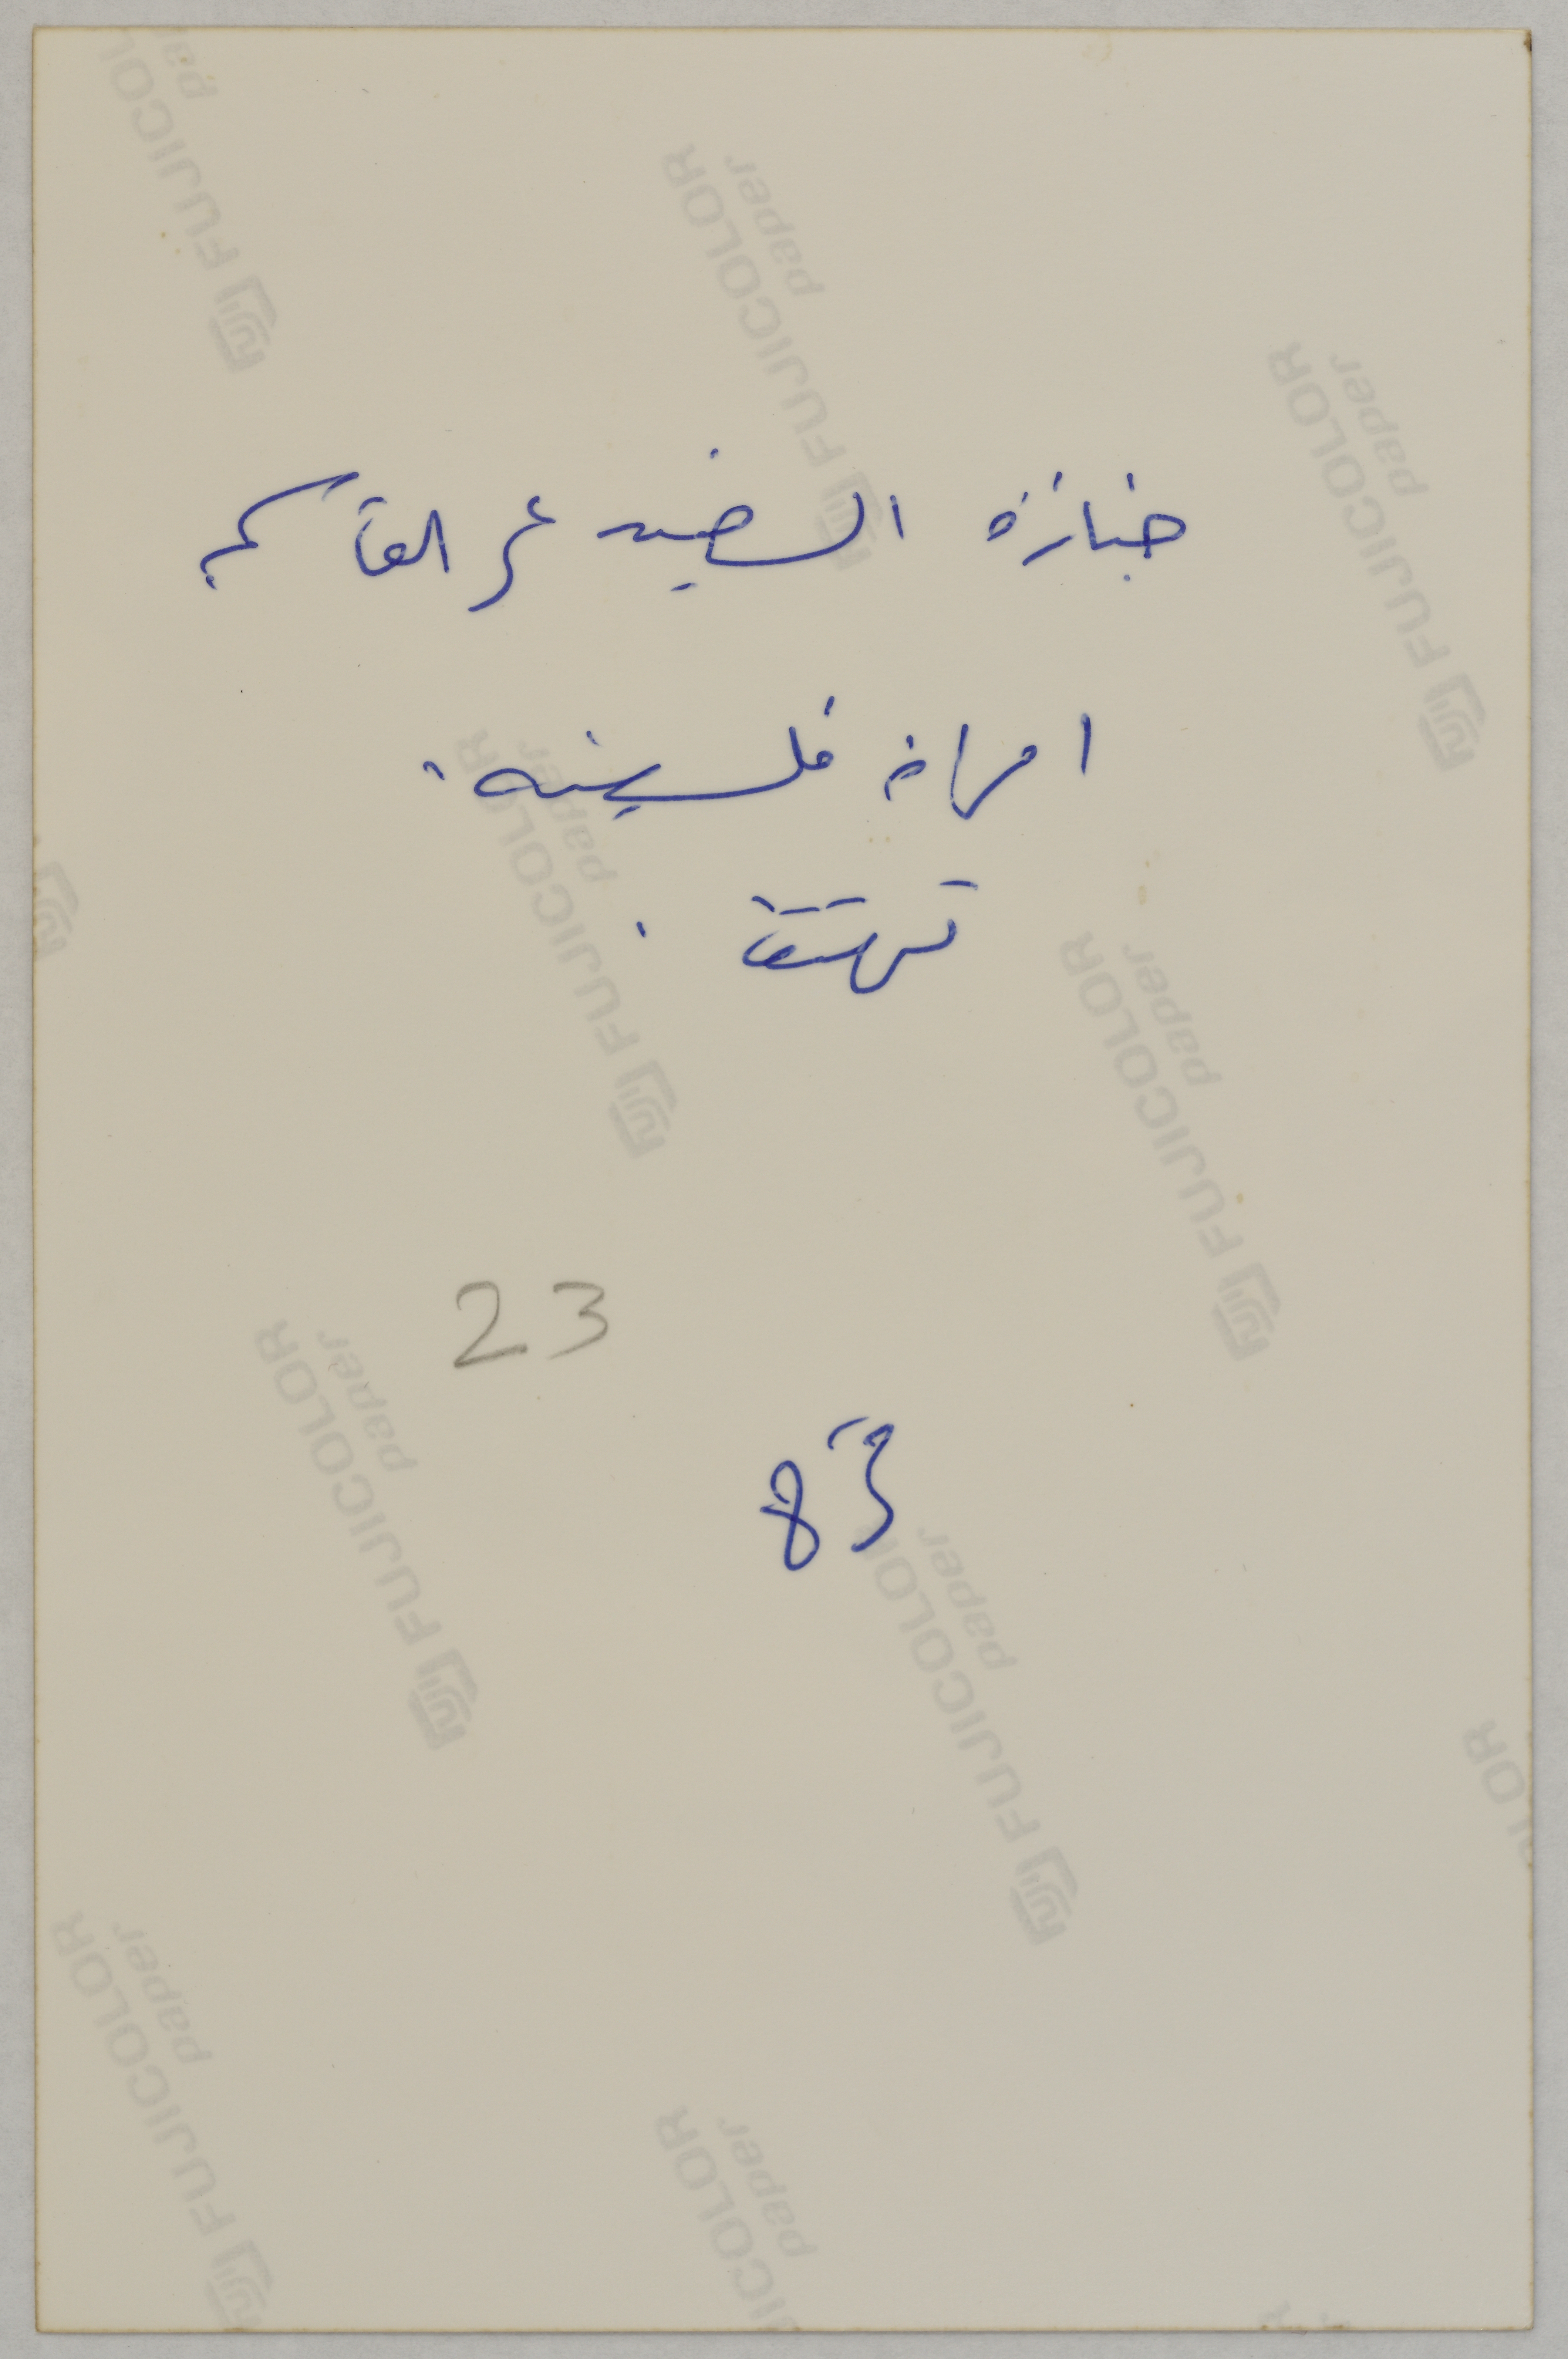 جنازة الشهيد عمر القاسم
امراة فلسطينية
تهتف .
23
83
FUJICOLOR paper
FUJICOLOR paper
FUJICOLOR paper
FUJICOLOR paper
FUJICOLOR paper
FUJICOLOR paper
FUJICOLOR paper
FUJICOLOR paper